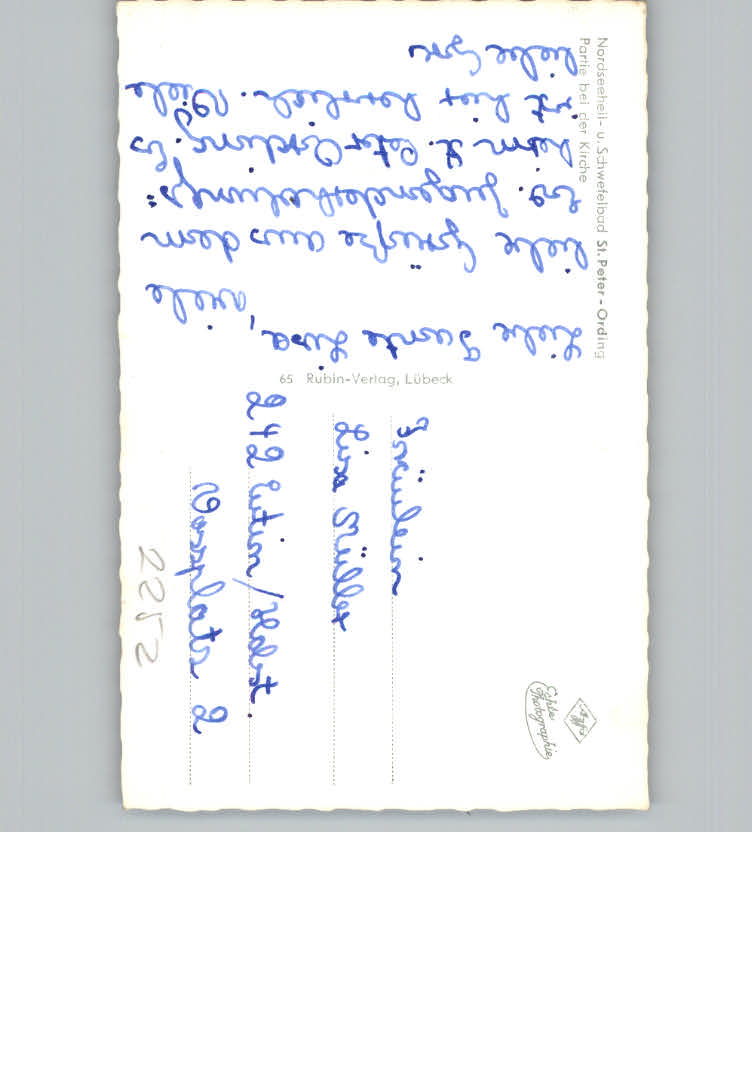 Nordseeheil- u. Schwefelbad St. Peter - Ording
Partie bei der Kirche
Liebe Tante Lisa,
viele
liebe Grüße aus dem
Ev.
heim St. Peter Ording. Es
ist hier herrlich. Viele
liebe
65 Rubin-Verlag, Lübeck
Fräulein
Lisa Müller
242 Eutin/Holst.
Vossplatz 2
2252
Agfa
Echte
Photographie